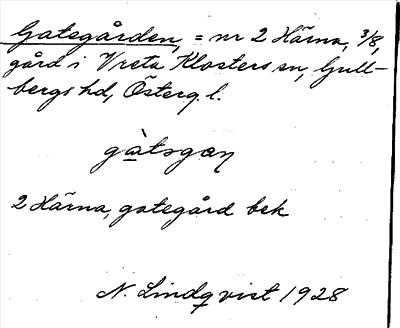 Gatsgården, = nr 2 Härna, 3/8,
gård i Vreta Klosters sn, Gull-
bergs hd, Österg. l.
gàtsgaŋ
2 Härna, gategård bek
N. Lindqvist 1928